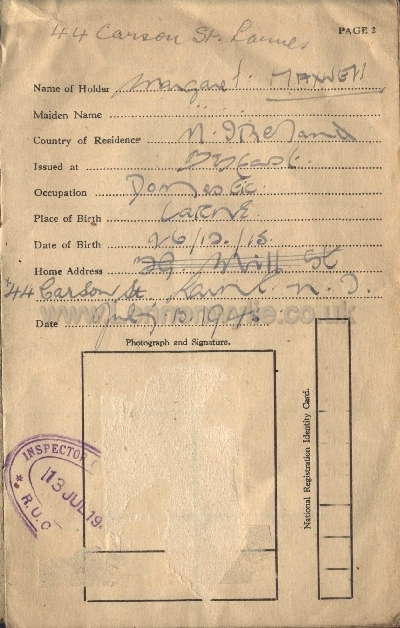 44 Carson St. Larne
PAGE 2
Name of Holder Margaret MAXWELL
Maiden Name
Country of Residence N. Ireland
Issued at Belfast.
Occupation Domestic
Place of Birth LARNE
Date of Birth 26/12/15
Home Address Mill St
44 Carson St. Larne N. I.
www.lennonwylie.co.uk
Date July 13
Photograph and Signature.
National Registration Identity Card.
INSPECTOR
13 JUL 19
R.U.C